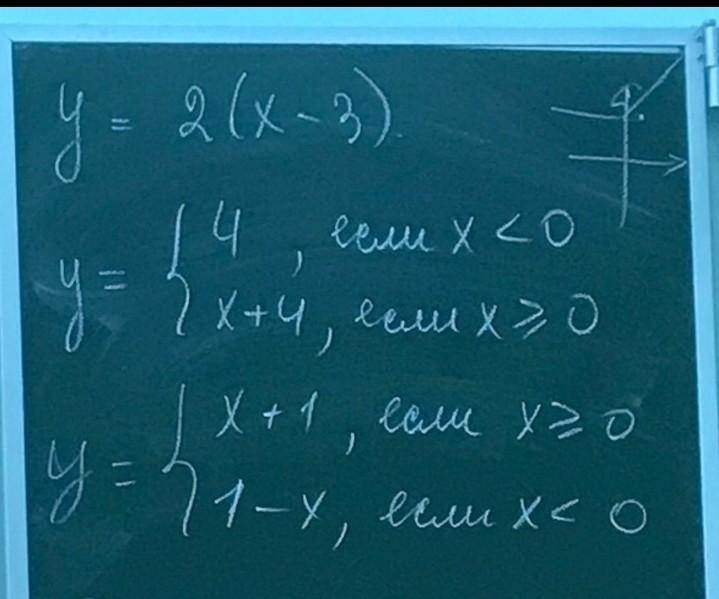 y = 2(x - 3)
y = { 4, если x < 0
x+4, если x ⩾ 0
y = { x + 1, если x ⩾ 0
1 - x, если x < 0